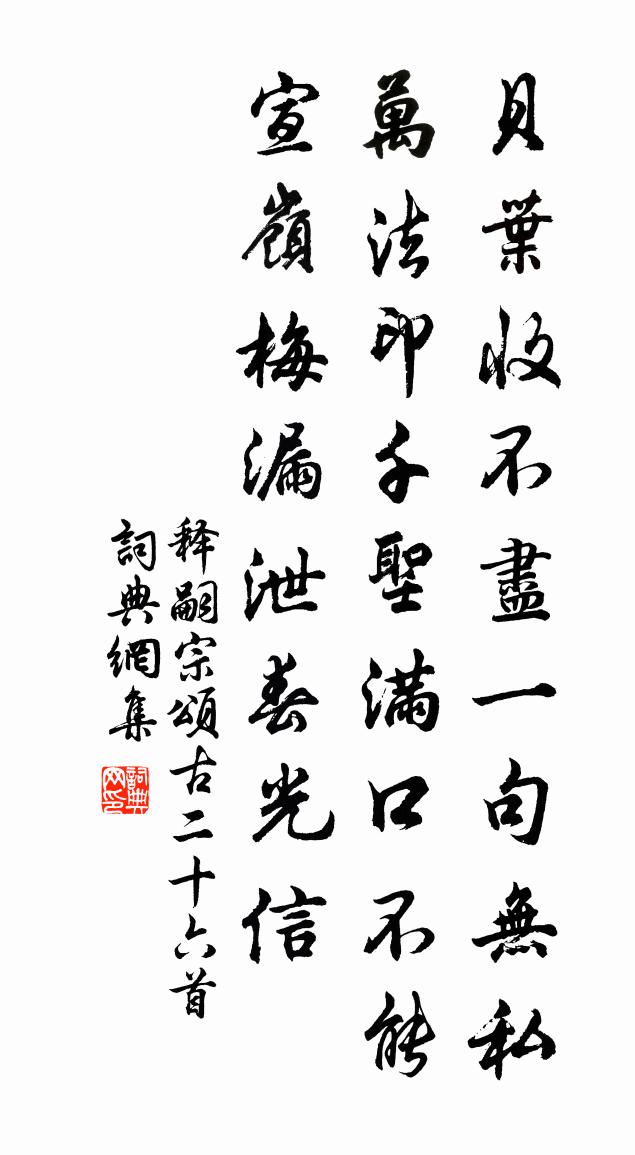 貝葉收不盡一句無私
萬法印千聖滿口不能
宣嶺梅漏泄春光信
释嗣宗頌古二十六首
詞典網集
詞典網印